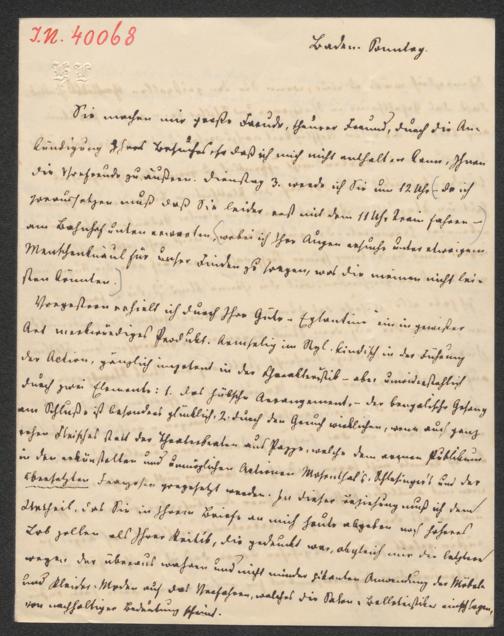 I.N. 40068
Baden. Sonntag.
Sie machen mir große Freude, theurer Freund, durch die An-
kündigung Ihres Besuches, so daß ich mich nicht enthalten kann, Ihnen
die Vorfreude zu äußern. Dienstag 3. werde ich Sie um 12 Uhr (da ich
voraussetzen muß daß Sie leider erst mit dem 11 Uhr Train fahren –)
am Bahnhof unten erwarten, (wobei ich Ihre Augen ersuche unter etwaigem
Menschenknäul für unser Finden zu sorgen, was die meinen nicht lei-
sten könnten.)
Vorgestern erhielt ich durch Ihre Güte „Eglantine" ein in gewisser
Art merkwürdiges Produkt. Armselig im Styl, kindisch in der Führung
der Action, gänzlich impotent in der Charakteristik – aber unwiderstehlich
durch zwei Elemente: 1. das hübsche Arrangement, – der bengalische Gesang
am Schluße ist besonders glücklich, 2. durch den Geruch wirklichen, wenn auch ganz
rohen Fleisches statt der Theaterbraten aus Pappe, welche dem armen Publikum
in den erkünstelten und unmöglichen Actionen Mosenthal's, Schlesinger's und der
übersetzten Franzosen vorgesetzt werden. In dieser Beziehung muß ich dem
Urtheil, das Sie in Ihrem Briefe an mich heute abgeben noch höheres
Lob zollen als Ihrer Kritik, die gedruckt war, obgleich mir die letztere
wegen der überaus wahren und nicht minder pikanten Anwendung der Möbel-
und Kleider-Moden auf das Verfahren, welches die Salon-Belletristiker einschlagen,
von nachhaltiger Bedeutung scheint.